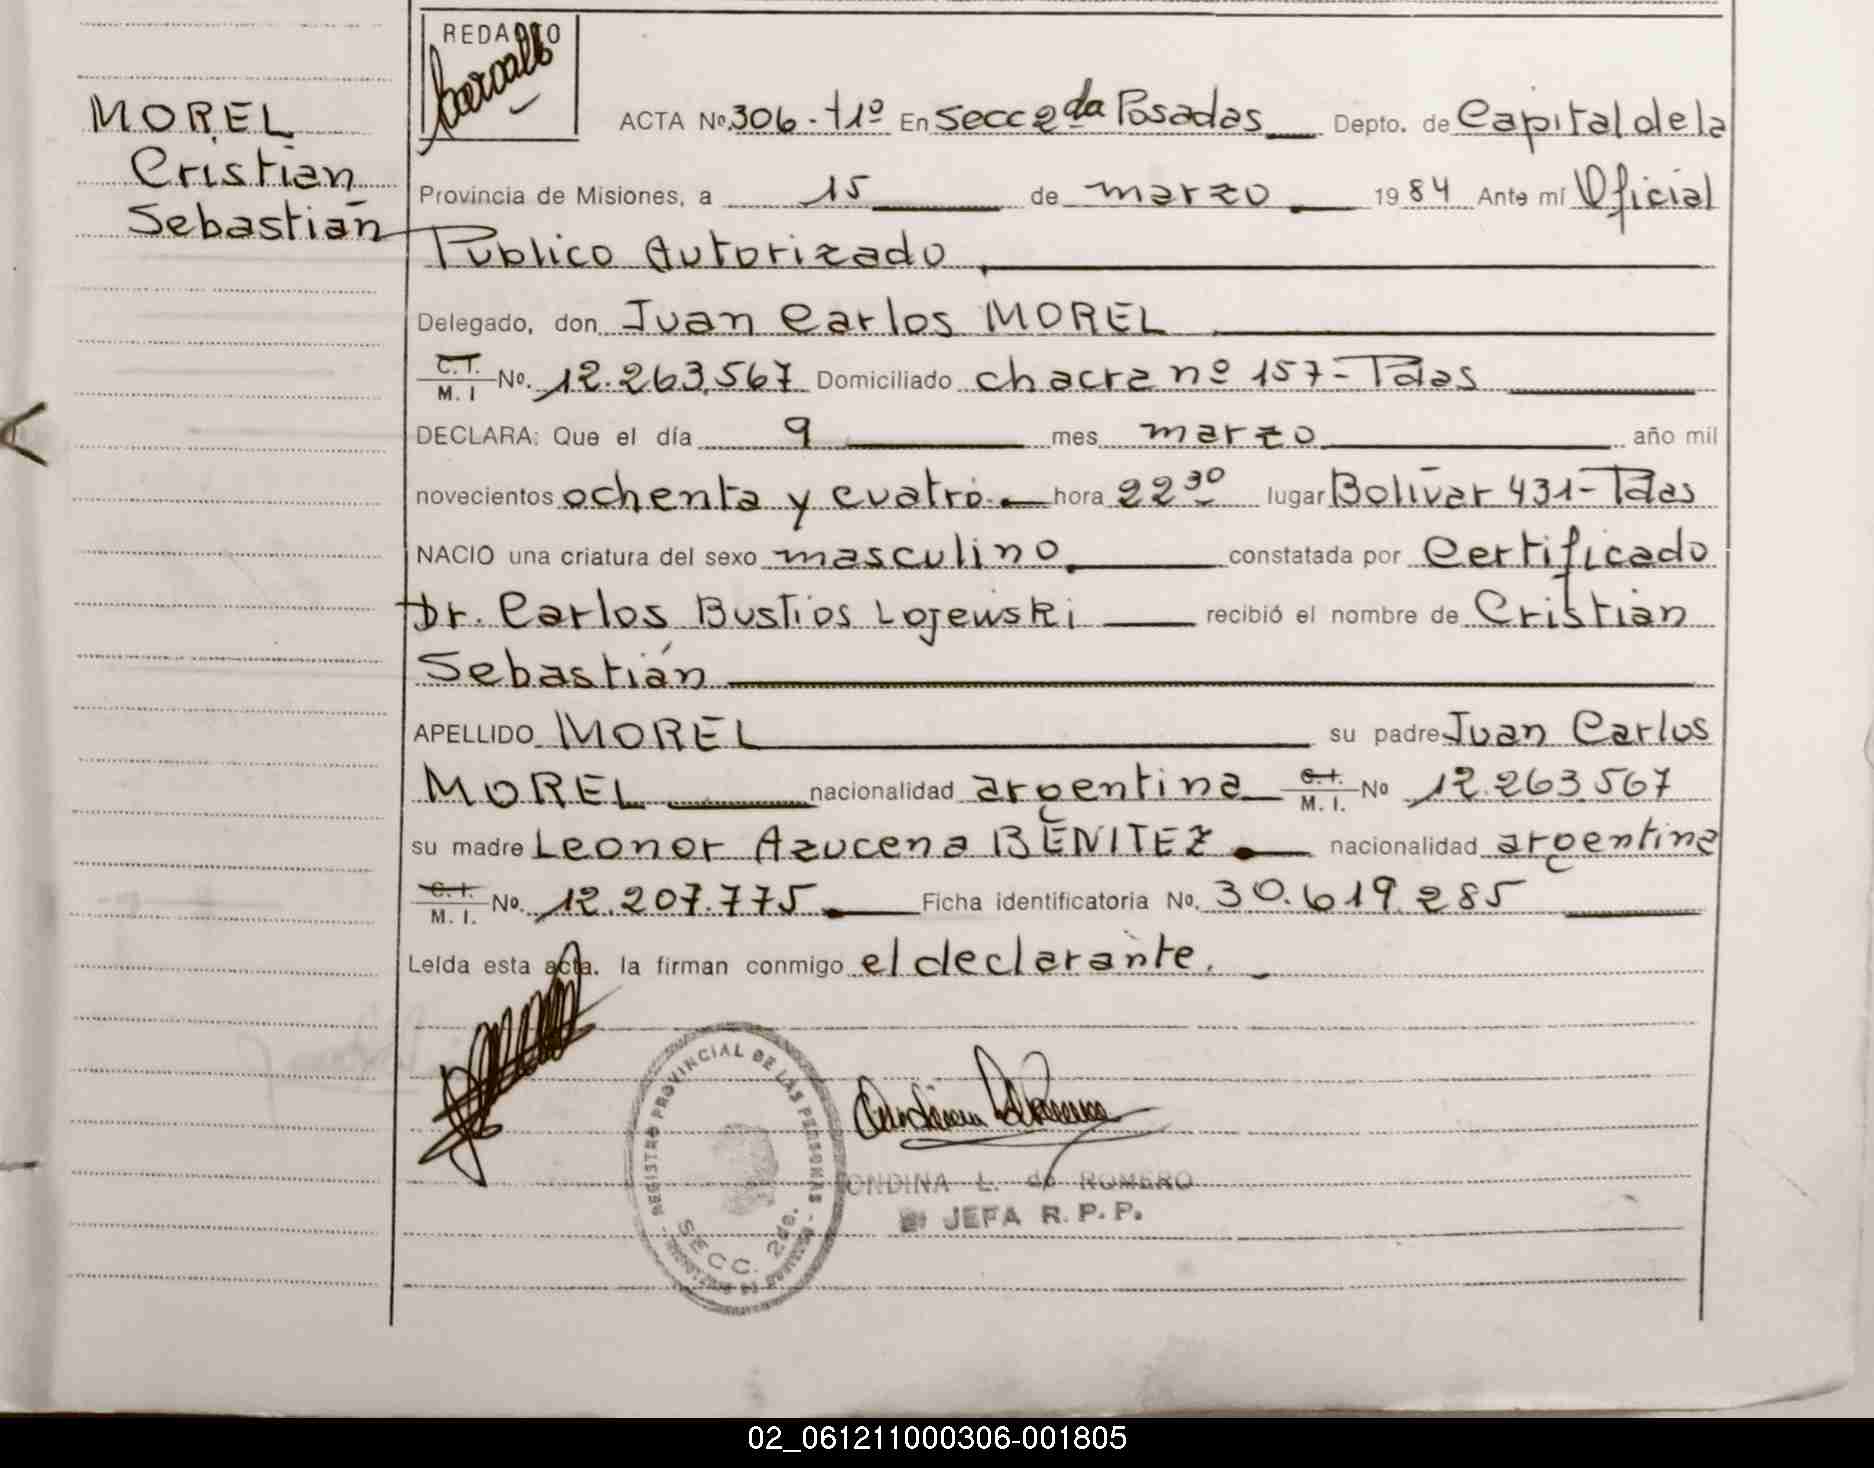 REDACTO
MOREL
Cristian
Sebastián
ACTA Nº 306 - t1º En Secc 2da Posadas Depto. de Capital de la
Provincia de Misiones, a 15 de marzo 1984 Ante mí Oficial
Publico Autorizado
Delegado, don Juan Carlos MOREL
C.T. M. I Nº. 12.263.567 Domiciliado chacra nº 157 - Pdas
DECLARA: Que el día 9 mes marzo año mil
novecientos ochenta y cuatro. hora 22 30 lugar Bolívar 431 - Pdas
NACIO una criatura del sexo masculino constatada por Certificado
Dr. Carlos Bustios Lojewski recibió el nombre de Cristian
Sebastián
APELLIDO MOREL su padre Juan Carlos
MOREL nacionalidad argentina C.I. M. I. Nº 12.263.567
su madre Leonor Azucena BENITEZ nacionalidad argentina
C.I. M. I. Nº. 12.207.775 Ficha identificatoria Nº. 30.619.285
Leída esta acta. la firman conmigo el declarante.
REGISTRO PROVINCIAL DE LAS PERSONAS
SECC. 2da.
ONDINA L. de ROMERO
JEFA R. P. P.
02_061211000306-001805